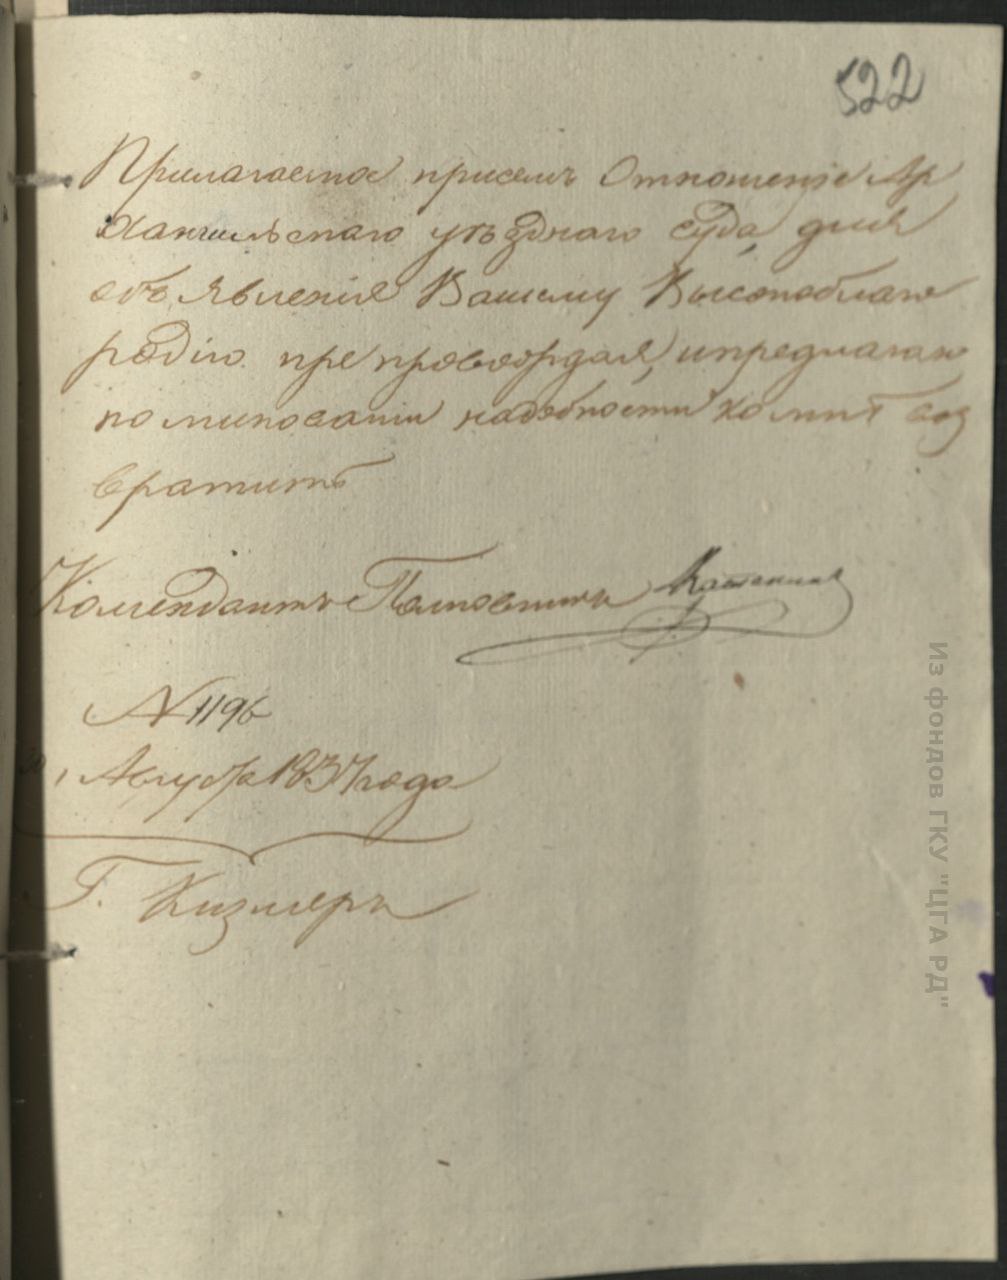 522
Прилагаемое присемъ Отношеніе Ар
хангильскаго уѣзднаго суда, для
объявленія Вашему Высокоблаго
родію препровождая, и предлагаю
по минованіи надобности ко мнѣ воз
вратить
Комендантъ Полковникъ
№ 1196
Августа 1837 года
Г. Кизляръ
Из фондов ГКУ "ЦГА РД"